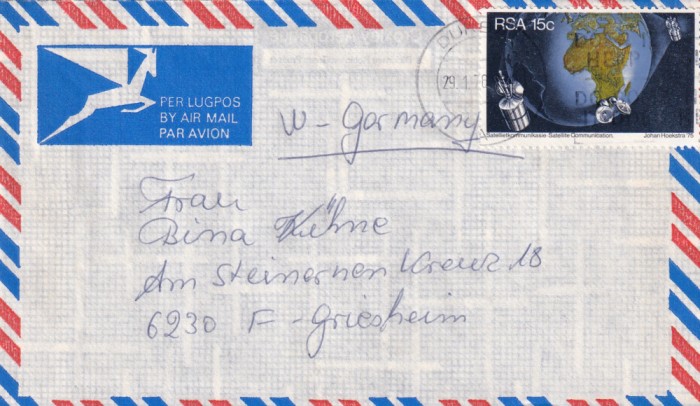 RSA 15c
Satellietkommunikasie · Satellite Communication
Johan Hoekstra '75
PER LUGPOS
BY AIR MAIL
PAR AVION
29.1.76
W-Germany
Frau
Bina Kühne
Am Steinernen Kreuz 18
6230 F-Griesheim